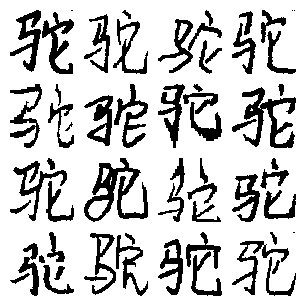 驼驼驼驼
驼驼驼驼
驼驼驼驼
驼驼驼驼